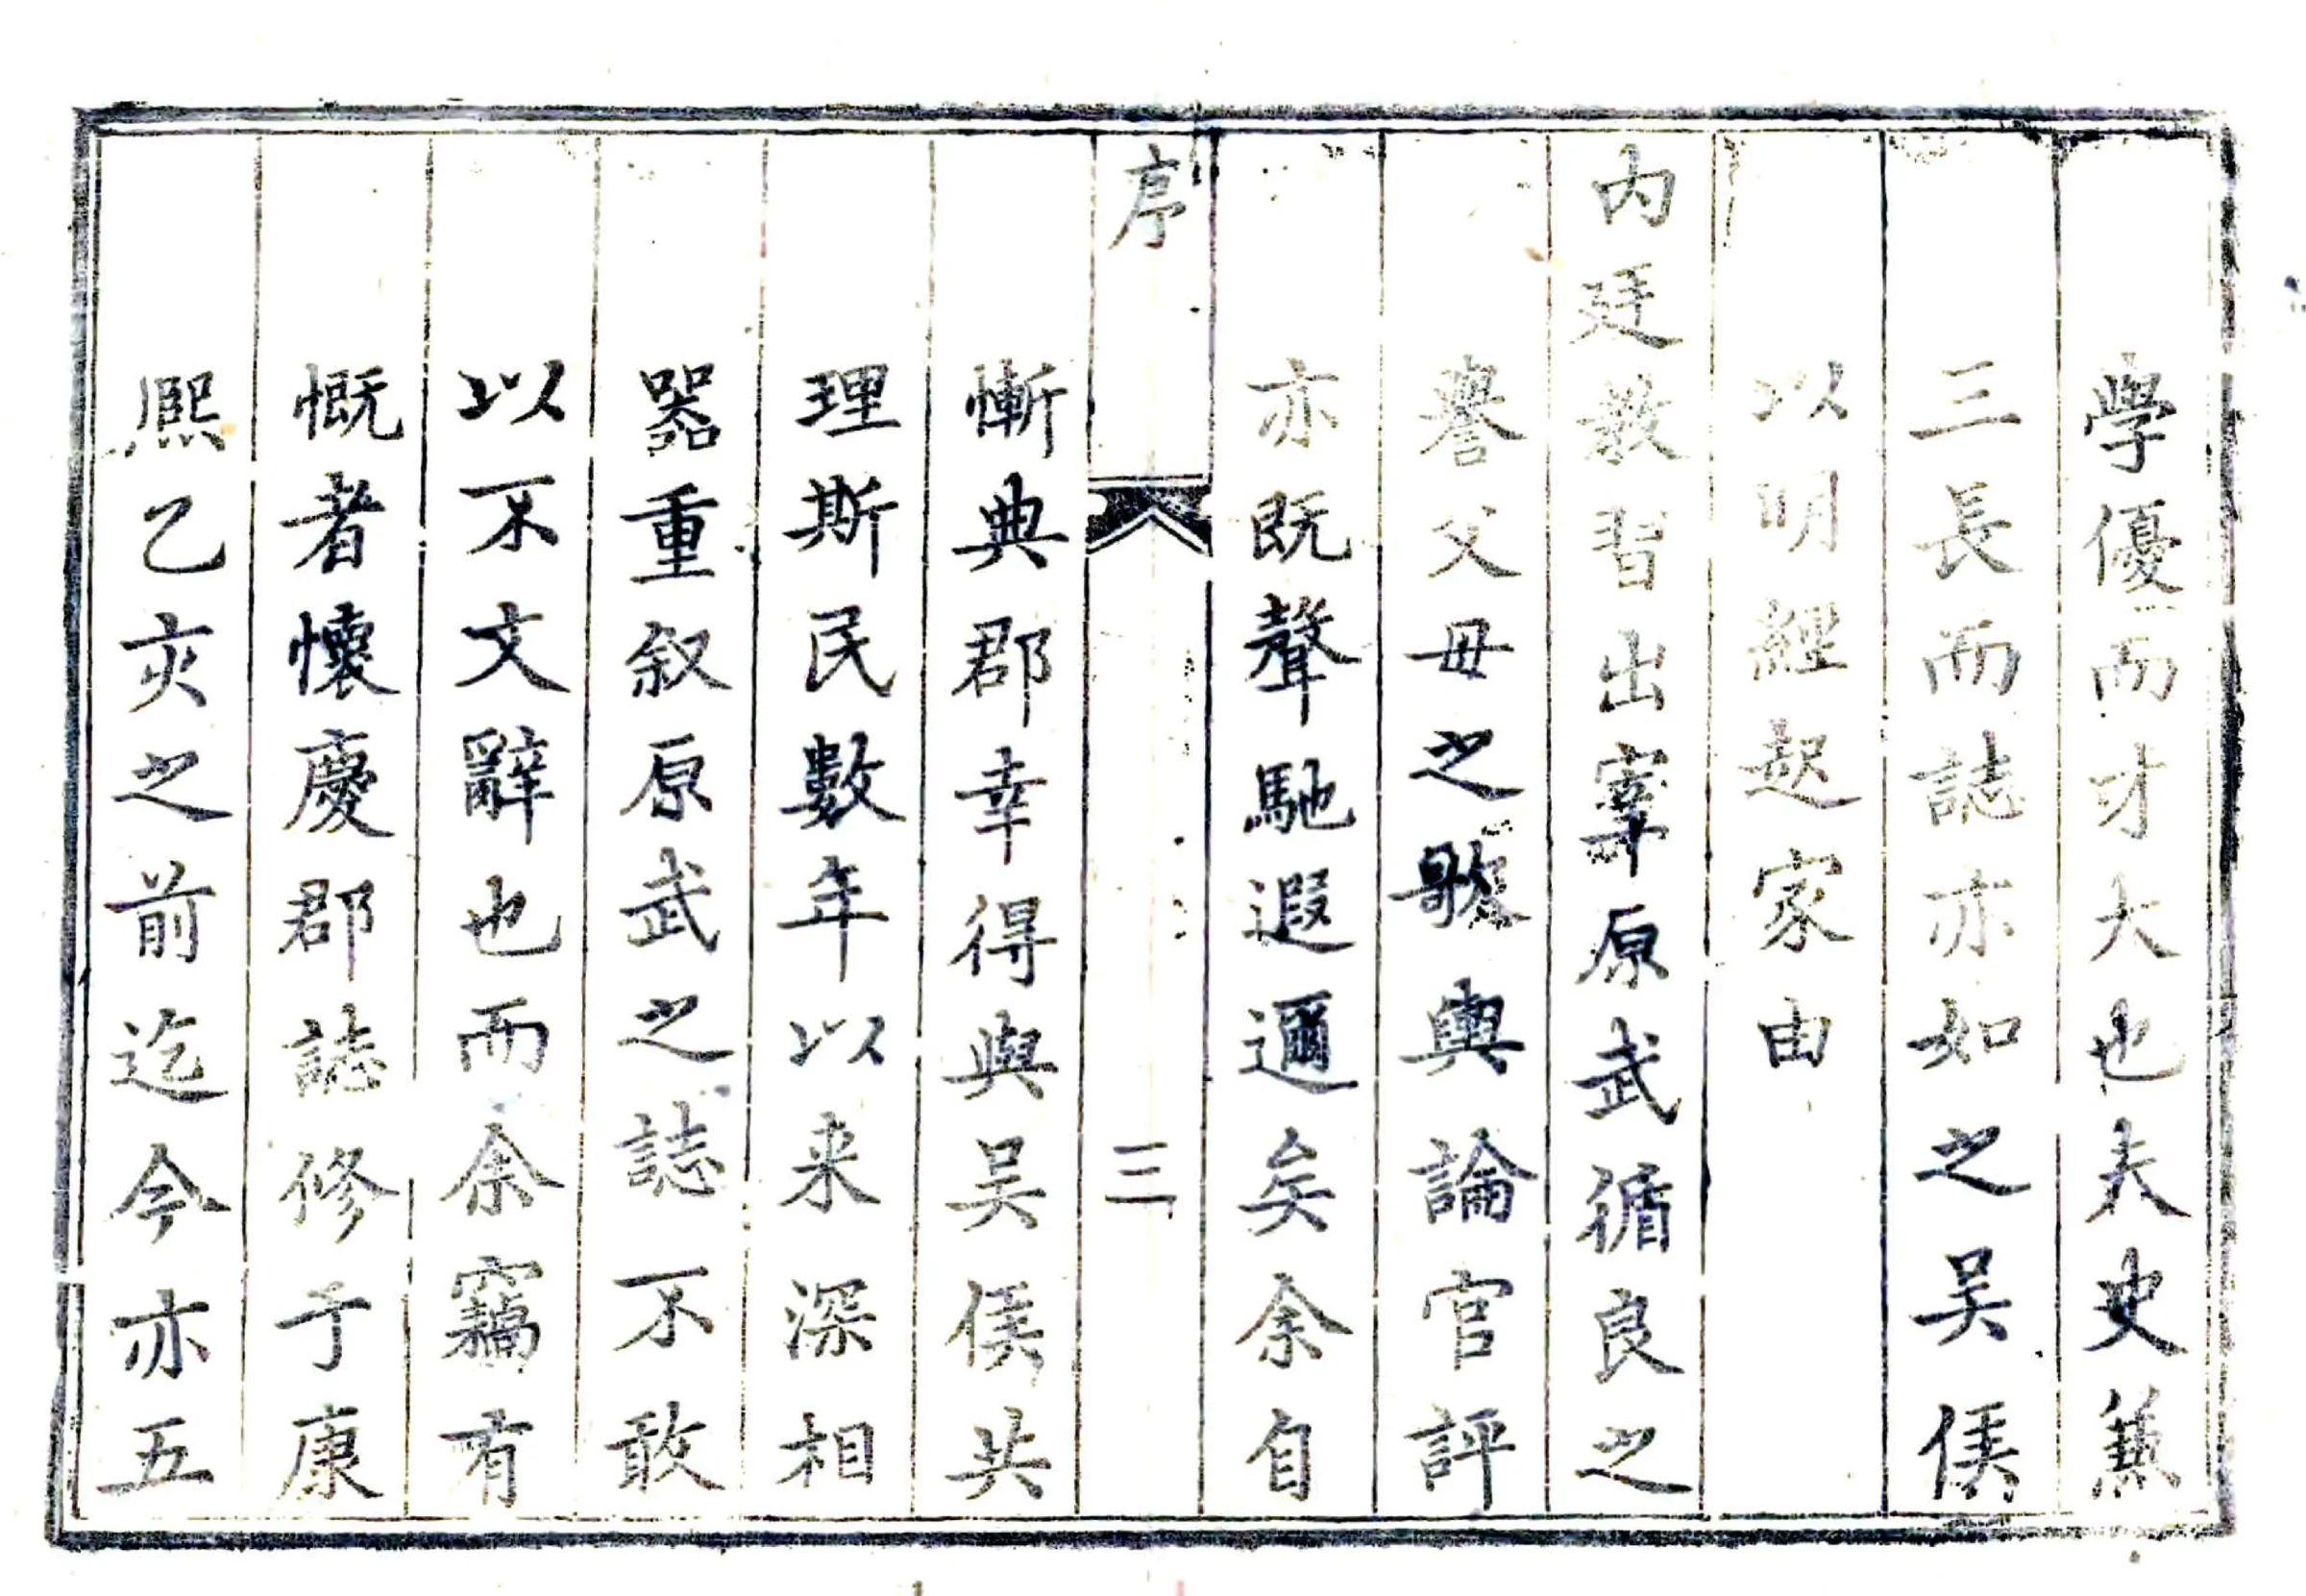 學優而才大也夫史蒹
三長而誌亦如之吴侯
以明經起家由
内廷敎習出宰原武循良之
譽父毋之歌輿論官評
亦既聲馳遐邇矣余自
序 三
慚典郡幸得與吴侯共
理斯民數年以来深相
器重叙原武之誌不敢
以不文辭也而余竊有
慨者懷慶郡誌修于康
熈乙亥之前迄今亦五